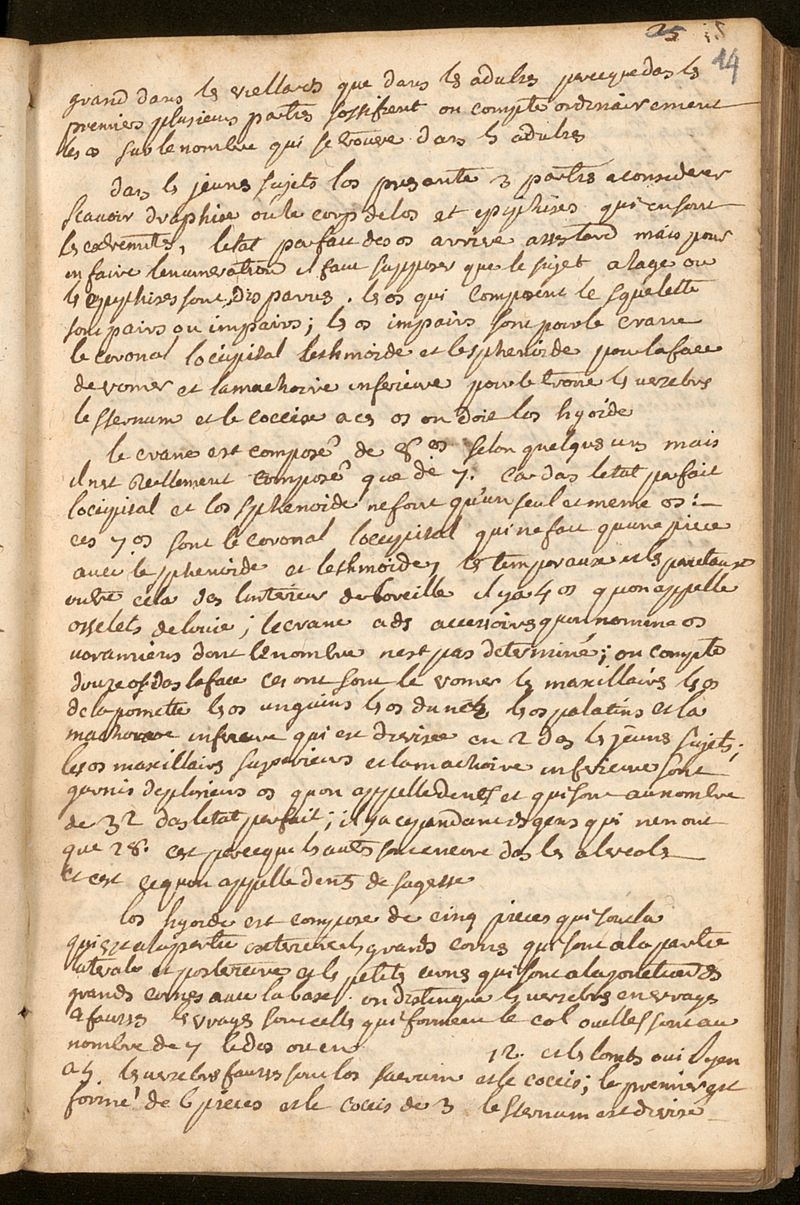 25
14
grand dans les viellards que dans les adultes parceque das les
premiers plusieurs parties sossifient on compte ordinairement
les os sur le nombre qui se trouve dans ls adultes
dans ls jeunes sujets los presente 3 parties a considerer
scavoir diaphise ou le corp de los et epiphises qui en sont
les extremites, letat parfait des os arrive asses tard mais pour
en faire lenumeration il faut supposer que le sujet a lage ou
ls epiphises sont disparus. ls os qui composent le squelette
sont pairs ou impairs; ls os impairs sont pour le crane
le coronal loccipital lethmoide et le sphenoide pour la face
le vomer et la machoire inferieure pour le tronc ls vertebres
le sternum et le coccix a ces os on doit los hyoide
le crane est composé de 8 os selon quelques uns mais
il nest reellement composé que de 7. car das letat parfait
loccipital et los sphenoide ne font qu'un seul et meme os:
ces 7 os sont le coronal loccipital qui ne fait qu'une piece
avec le sphenoide et lethmoide, ls temporaux et ls parietaux
outre cela des linterieur de loreille il y a 4 os quon appelle
osselets de louie; le crane a ds accessoires quon nomme os
vormiens dont le nombre nest pas determiné; on compte
douze os das la face ces ont sont le vomer ls maxillaires ls os
de la pomette ls os unguins ls os du nez ls os palatins et la
machoire inferieure qui est divisée en 2 das ls jeunes sujets;
les os maxillaires superieurs et la machoire inferieure sont
garnis de plusieurs os quon appelle dents et qui sont au nombre
de 32 das letat parfait; il y a cependant ds gens qui nen ont
que 28. cest parceque ls autres sont encore das les alveols
et cest ce quon appelle dents de sagesse
los hyoide est composé de cinq pieces qui sont la
qui est a la partie exterieure ls grands cornes qui sont a la partie
laterale et posterieure et ls petits cornes qui sont a la jonction ds
grands cornes avec la base. on distingue ls vertebres en vrayes
et fausses ls vrayes sont cells qui forment le col ou elles sont au
nombre de 7 le dos ou en 12. et ls lombs ou il y en
a 5. ls vertebres fausses sont los sacrum et le coccis; le premier est
formé de 6 pieces et le coccis de 3 le sternum est divisé